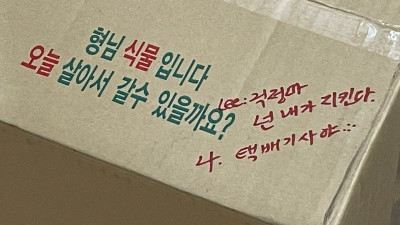 형님 식물입니다
오늘 살아서 갈수 있을까요?
Lee: 걱정마
넌 내가 지킨다.
나. 택배기사야...